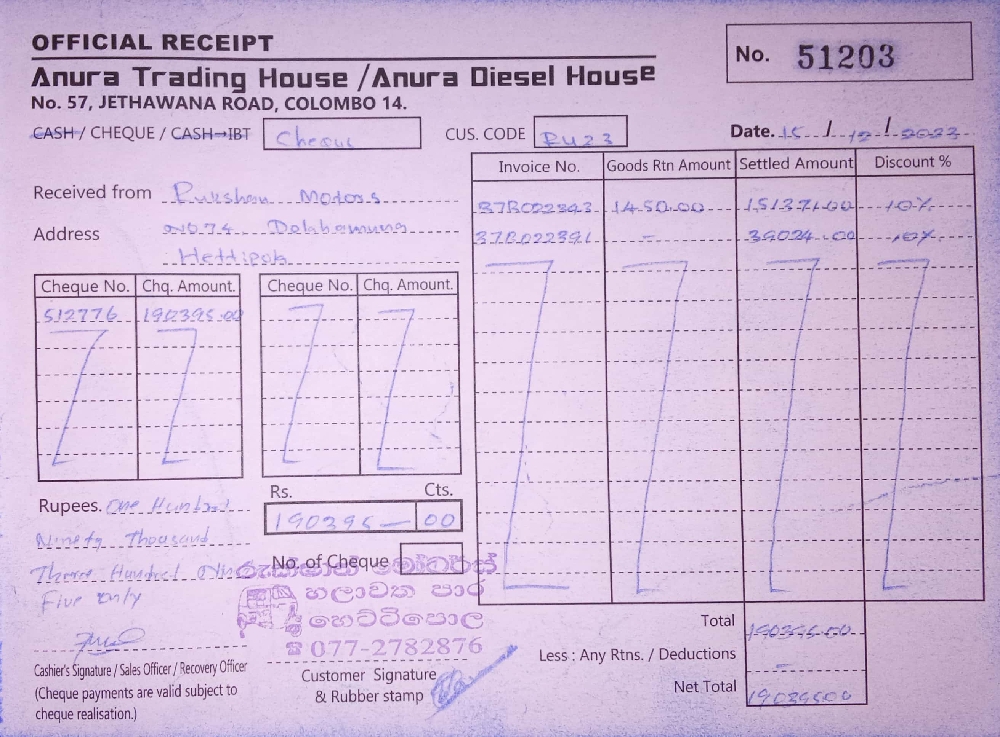 OFFICIAL RECEIPT
No. 51203
Anura Trading House / Anura Diesel House
No. 57, JETHAWANA ROAD, COLOMBO 14.
CASH / CHEQUE / CASH→IBT Cheque CUS. CODE RU23 Date. 15 / 12 / 2023
Invoice No. Goods Rtn Amount Settled Amount Discount %
Received from Rukshan Motors
37B022393 1450.00 151371.00 10%
Address No 74
37B022391 - 39024.00 10%
Hettipola
Cheque No. Chq. Amount. Cheque No. Chq. Amount.
512776 190395.00
Rs. Cts.
Rupees. One Hundred
190395 — 00
Ninety Thousand
No. of Cheque
Three Hundred
Five only
හලාවත පාර
හෙට්ටිපොල
☎ 077-2782876
Total 190395.00
Less : Any Rtns. / Deductions -
Net Total 190395.00
Cashier's Signature / Sales Officer / Recovery Officer
(Cheque payments are valid subject to
cheque realisation.)
Customer Signature
& Rubber stamp